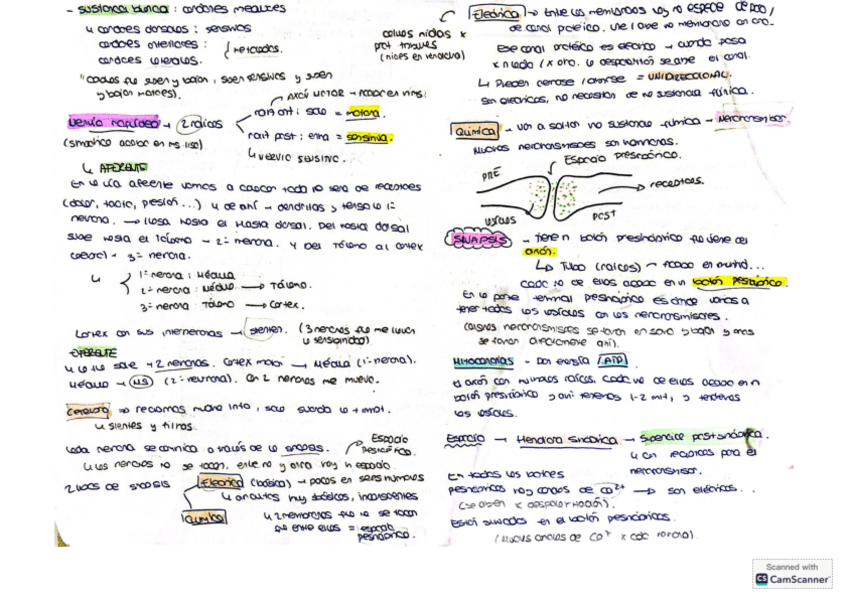 - SUSTANCIA blanca : cordones medulares
↳ cordones dorsales : sensitivos
cordones anteriores :
cordones laterales.
mezclados.
y bajan motores).
AXÓN MOTOR
Nervio raquídeo → 2 raíces
raíz ant : sale = motora.
raíz post : entra = sensitiva.
↳ NERVIO SENSITIVO.
↳ AFERENTE
En la vía aferente vamos a captar todo
(dolor, tacto, presión...) y de ahí → dendritas y
neurona. → llega hasta el asta dorsal. Del asta dorsal
sube hasta el tálamo → 2ª neurona. Y del tálamo al cortex
cerebral → 3ª neurona.
1ª neurona : Médula
2ª neurona : Médula → Tálamo.
3ª neurona : Tálamo → Cortex.
Cortex con sus interneuronas → sienten. (3 neuronas que me llevan
la sensibilidad)
EFERENTE
2 neuronas. Cortex motor → Médula (1ª neurona).
Médula → MS (2ª neurona). Con 2 neuronas me muevo.
Cerebro → recibimos mucha info, solo guarda lo + imp.
↳ sientes y filtras.
Cada neurona se comunica a través de la sinapsis.
Espacio
presináptico.
↳ Las neuronas no se tocan, entre una y otra hay un espacio.
2 tipos de sinapsis
Eléctrica (básica) → pocas en seres humanos
↳ circuitos muy básicos, inconscientes
Química
↳ 2 membranas que no se tocan
que entre ellas = espacio
presináptico.
Eléctrica → Entre las membranas hay una especie de poro /
de canal proteico. Une 1 a otra membrana
células unidas x
Ese canal proteico es eléctrico → cuando pasa
se abre el canal.
↳ Pueden cerrarse / abrirse = UNIDIRECCIONAL.
Son eléctricas, no necesitan de una sustancia química.
Química → van a soltar una sustancia química → Neurotransmisor.
Muchos neurotransmisores son hormonas.
Espacio presináptico.
PRE
→ receptores.
POST
SINAPSIS → tiene un botón presináptico que viene del
axón.
↳ Tubo (raíces) → acabado en muchos...
Cada uno de ellos acaba en un botón presináptico.
En la parte terminal presináptica es donde vamos a
tener todas las vesículas con los neurotransmisores.
(algunos neurotransmisores se forman en soma y bajan y otros
se forman directamente ahí).
Mitocondrias → Dan energía (ATP)
El axón con muchas raíces, cada una de ellas acaba en un
botón presináptico y ahí tenemos 1-2 mit, y tenemos
las vesículas.
Espacio → Hendidura sináptica → Superficie postsináptica.
↳ con receptores para el
neurotransmisor.
En todos los botones
presinápticos hay canales de Ca²⁺ → son eléctricos..
(se abren x despolarización).
Están situados en el botón presináptico.
(Muchos canales de Ca⁺ x cada neurona).
Scanned with
CS CamScanner